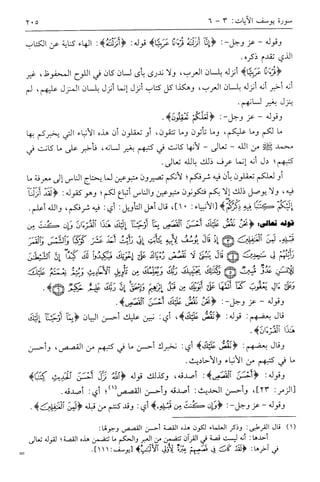 سورة يوسف الآيات: ٣ - ٦
٢٠٥
وقوله - عز وجل -: ﴿إِنَّا أَنزَلْنَٰهُ قُرْءَٰنًا عَرَبِيًّا﴾ قوله: ﴿أَنزَلْنَٰهُ﴾: الهاء كناية عن الكتاب
الذي تقدم ذكره.
﴿قُرْءَٰنًا عَرَبِيًّا﴾ أنزله بلسان العرب، ولا ندري بأي لسان كان في اللوح المحفوظ، غير
أنه أخبر أنه أنزله بلسان العرب، وهكذا كل كتاب أنزل إنما أنزل بلسان المنزل عليهم، لم
ينزل بغير لسانهم.
وقوله - عز وجل -: ﴿لَعَلَّكُمْ تَعْقِلُونَ﴾.
ما لكم وما عليكم، وما تأتون وما تتقون، أو تعقلون أن هذه الأنباء التي يخبركم بها
محمد ﷺ من الله - تعالى - أنها كانت في كتبهم بغير لسانه، فأخبر على ما كانت في
كتبهم؛ دل أنه إنما عرف ذلك بالله تعالى.
أو لعلكم تعقلون بأن فيه شرفكم؛ لأنكم تصيرون متبوعين لما يحتاج الناس إلى معرفة ما
فيه، ولا يوصل ذلك إلا بكم فتكونون متبوعين والناس أتباع لكم؛ وهو كقوله: ﴿لَقَدْ أَنزَلْنَا
إِلَيْكُمْ كِتَٰبًا فِيهِ ذِكْرُكُمْ﴾ [الأنبياء: ١٠]، قال أهل التأويل: أي: فيه شرفكم، والله أعلم.
قوله تعالى: ﴿نَحْنُ نَقُصُّ عَلَيْكَ أَحْسَنَ ٱلْقَصَصِ بِمَآ أَوْحَيْنَآ إِلَيْكَ هَٰذَا ٱلْقُرْءَانَ وَإِن كُنتَ مِن
قَبْلِهِۦ لَمِنَ ٱلْغَٰفِلِينَ ﴿٣﴾ إِذْ قَالَ يُوسُفُ لِأَبِيهِ يَٰٓأَبَتِ إِنِّى رَأَيْتُ أَحَدَ عَشَرَ كَوْكَبًا وَٱلشَّمْسَ وَٱلْقَمَرَ
رَأَيْتُهُمْ لِى سَٰجِدِينَ ﴿٤﴾ قَالَ يَٰبُنَىَّ لَا تَقْصُصْ رُءْيَاكَ عَلَىٰٓ إِخْوَتِكَ فَيَكِيدُوا۟ لَكَ كَيْدًا إِنَّ ٱلشَّيْطَٰنَ
لِلْإِنسَٰنِ عَدُوٌّ مُّبِينٌ ﴿٥﴾ وَكَذَٰلِكَ يَجْتَبِيكَ رَبُّكَ وَيُعَلِّمُكَ مِن تَأْوِيلِ ٱلْأَحَادِيثِ وَيُتِمُّ نِعْمَتَهُۥ عَلَيْكَ
وَعَلَىٰٓ ءَالِ يَعْقُوبَ كَمَآ أَتَمَّهَا عَلَىٰٓ أَبَوَيْكَ مِن قَبْلُ إِبْرَٰهِيمَ وَإِسْحَٰقَ إِنَّ رَبَّكَ عَلِيمٌ حَكِيمٌ ﴿٦﴾﴾.
وقوله - عز وجل -: ﴿نَحْنُ نَقُصُّ عَلَيْكَ أَحْسَنَ ٱلْقَصَصِ﴾.
قال بعضهم: قوله: ﴿نَقُصُّ عَلَيْكَ﴾، أي: نبين عليك أحسن البيان ﴿بِمَآ أَوْحَيْنَآ إِلَيْكَ
هَٰذَا ٱلْقُرْءَانَ﴾.
وقال بعضهم: ﴿نَقُصُّ عَلَيْكَ﴾ أي: نخبرك أحسن ما في كتبهم من القصص، وأحسن
ما في كتبهم من الأنباء والأحاديث.
وقوله: ﴿أَحْسَنَ ٱلْقَصَصِ﴾: أصدقه، وكذلك قوله ﴿ٱللَّهُ نَزَّلَ أَحْسَنَ ٱلْحَدِيثِ كِتَٰبًا﴾
[الزمر: ٢٣]، وأحسن الحديث: أصدقه وأحسن القصص(١)؛ أي: أصدقه.
وقوله - عز وجل -: ﴿وَإِن كُنتَ مِن قَبْلِهِۦ﴾ أي: وقد كنتم من قبله ﴿لَمِنَ ٱلْغَٰفِلِينَ﴾.
(١) قال القرطبي: وذكر العلماء لكون هذه القصة أحسن القصص وجوها:
أحدها: أنه ليست قصة في القرآن تتضمن من العبر والحكم ما تتضمن هذه القصة؛ لقوله تعالى
في آخرها: ﴿لَقَدْ كَانَ فِى قَصَصِهِمْ عِبْرَةٌ لِّأُو۟لِى ٱلْأَلْبَٰبِ﴾ [يوسف: ١١١].